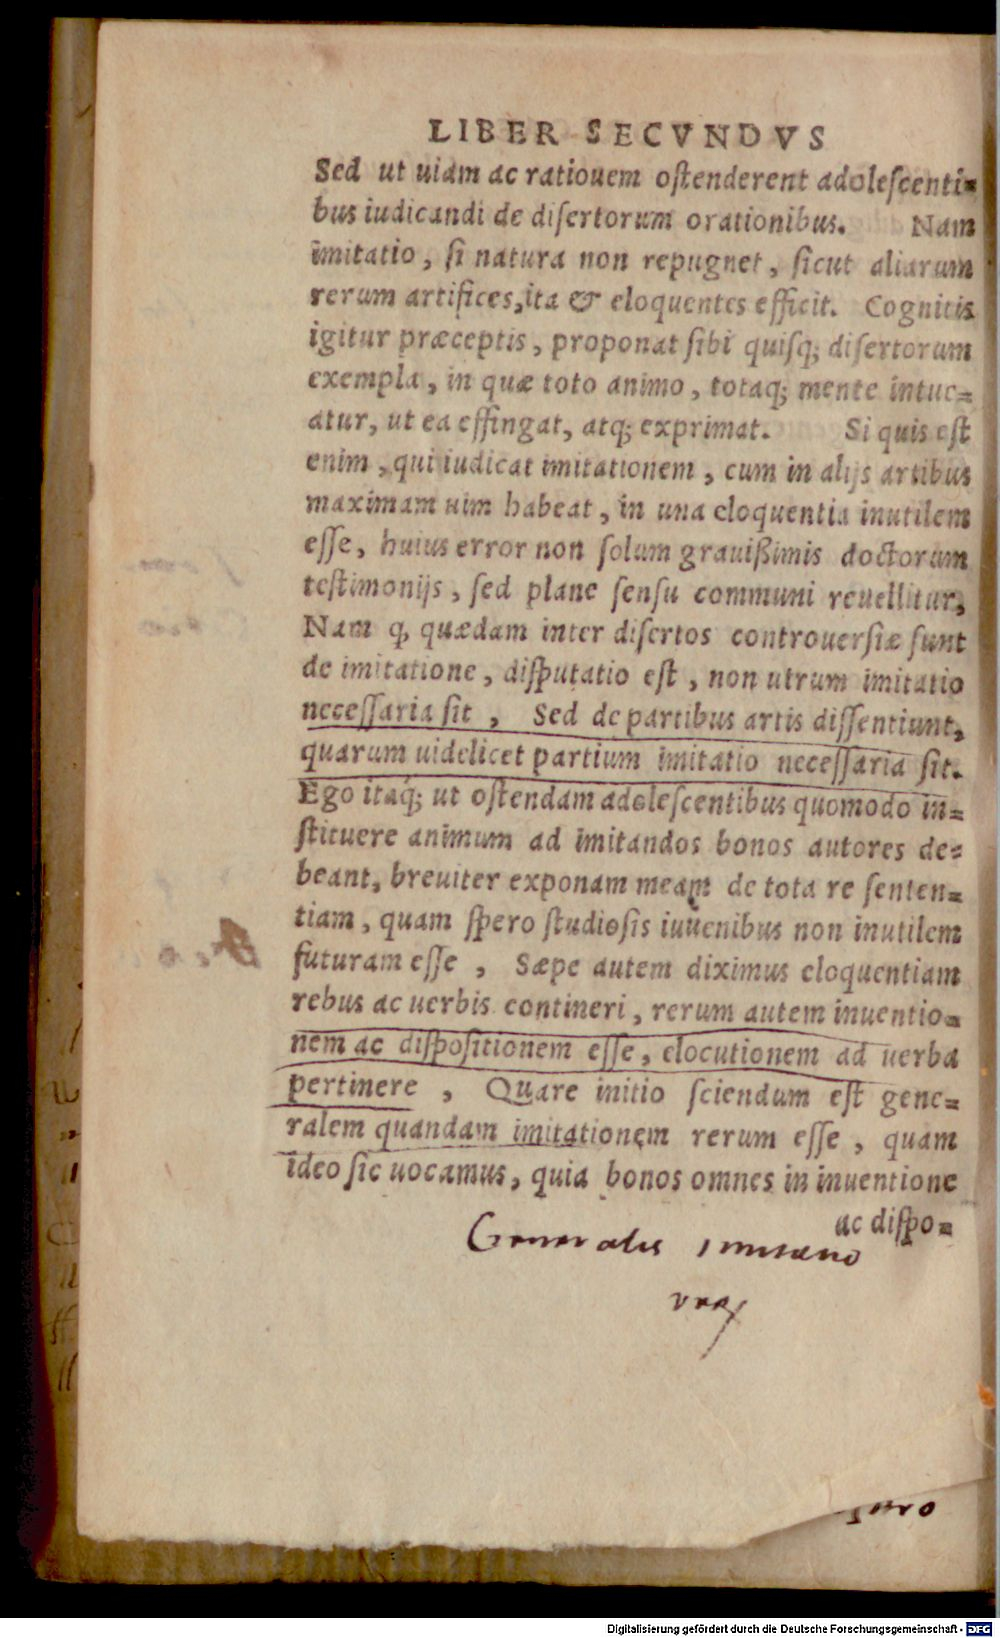 LIBER SECVNDVS
Sed ut uiam ac rationem oſtenderent adoleſcenti=
bus iudicandi de diſertorum orationibus. Nam
imitatio, ſi natura non repugnet, ſicut aliarum
rerum artifices, ita & eloquentes efficit. Cognitis
igitur præceptis, proponat ſibi quiſq; diſertorum
exempla, in quæ toto animo, totaq; mente intue=
atur, ut ea effingat, atq; exprimat. Si quis eſt
enim, qui iudicat imitationem, cum in alijs artibus
maximam uim habeat, in una eloquentia inutilem
eſſe, huius error non ſolum grauißimis doctorum
teſtimonijs, ſed plane ſenſu communi reuellitur,
Nam q, quædam inter diſertos controuerſiæ ſunt
de imitatione, diſputatio eſt, non utrum imitatio
neceſſaria ſit, Sed de partibus artis diſſentiunt,
quarum uidelicet partium imitatio neceſſaria ſit.
Ego itaq́; ut oſtendam adoleſcentibus quomodo in=
ſtituere animum ad imitandos bonos autores de=
beant, breuiter exponam meam de tota re ſenten=
tiam, quam ſpero ſtudioſis iuuenibus non inutilem
futuram eſſe, Sæpe autem diximus eloquentiam
rebus ac uerbis contineri, rerum autem inuentio=
nem ac diſpoſitionem eſſe, elocutionem ad uerba
pertinere, Quare initio ſciendum eſt gene=
ralem quandam imitationem rerum eſſe, quam
ideo ſic uocamus, quia bonos omnes in inuentione
ac diſpo=
Generalis imitatio